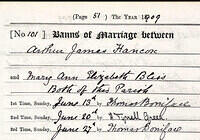 (Page 51) The Year 1909
[No 101] Banns of Marriage between
Arthur James Hancox
and Mary Ann Elizabeth Bliss
Both of this Parish
1st Time, Sunday, June 13th by Thomas Boniface
2nd Time, Sunday, June 20th by Green
3rd Time, Sunday, June 27th by Thomas Boniface